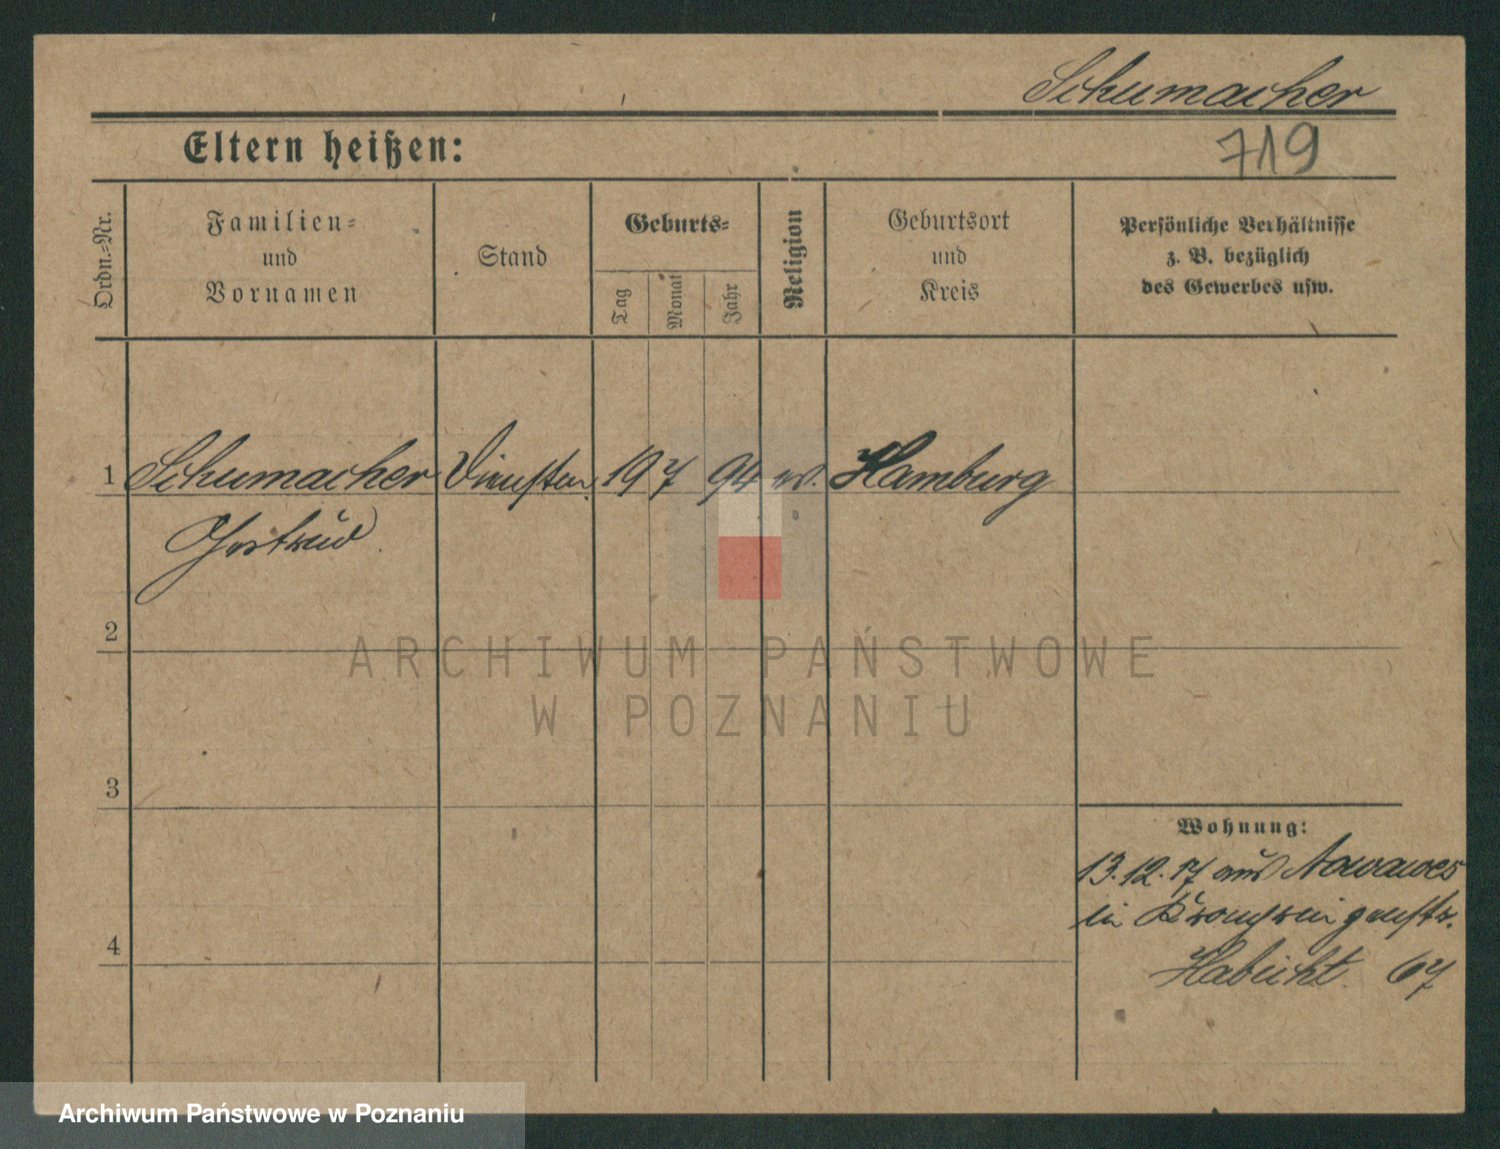 Schumacher
719
Eltern heißen:
Ordn.-Nr.
Familien-
und
Vornamen
Stand
Geburts-
Tag
Monat
Jahr
Religion
Geburtsort
und
Kreis
Persönliche Verhältnisse
z. B. bezüglich
des Gewerbes usw.
1 Schumacher 19 7 94 ev. Hamburg
Gertrud
2
3
4
Wohnung:
13.12.17 aus Nowawes
in Kronprinzenstr.
Habicht 67
ARCHIWUM PAŃSTWOWE
W POZNANIU
Archiwum Państwowe w Poznaniu